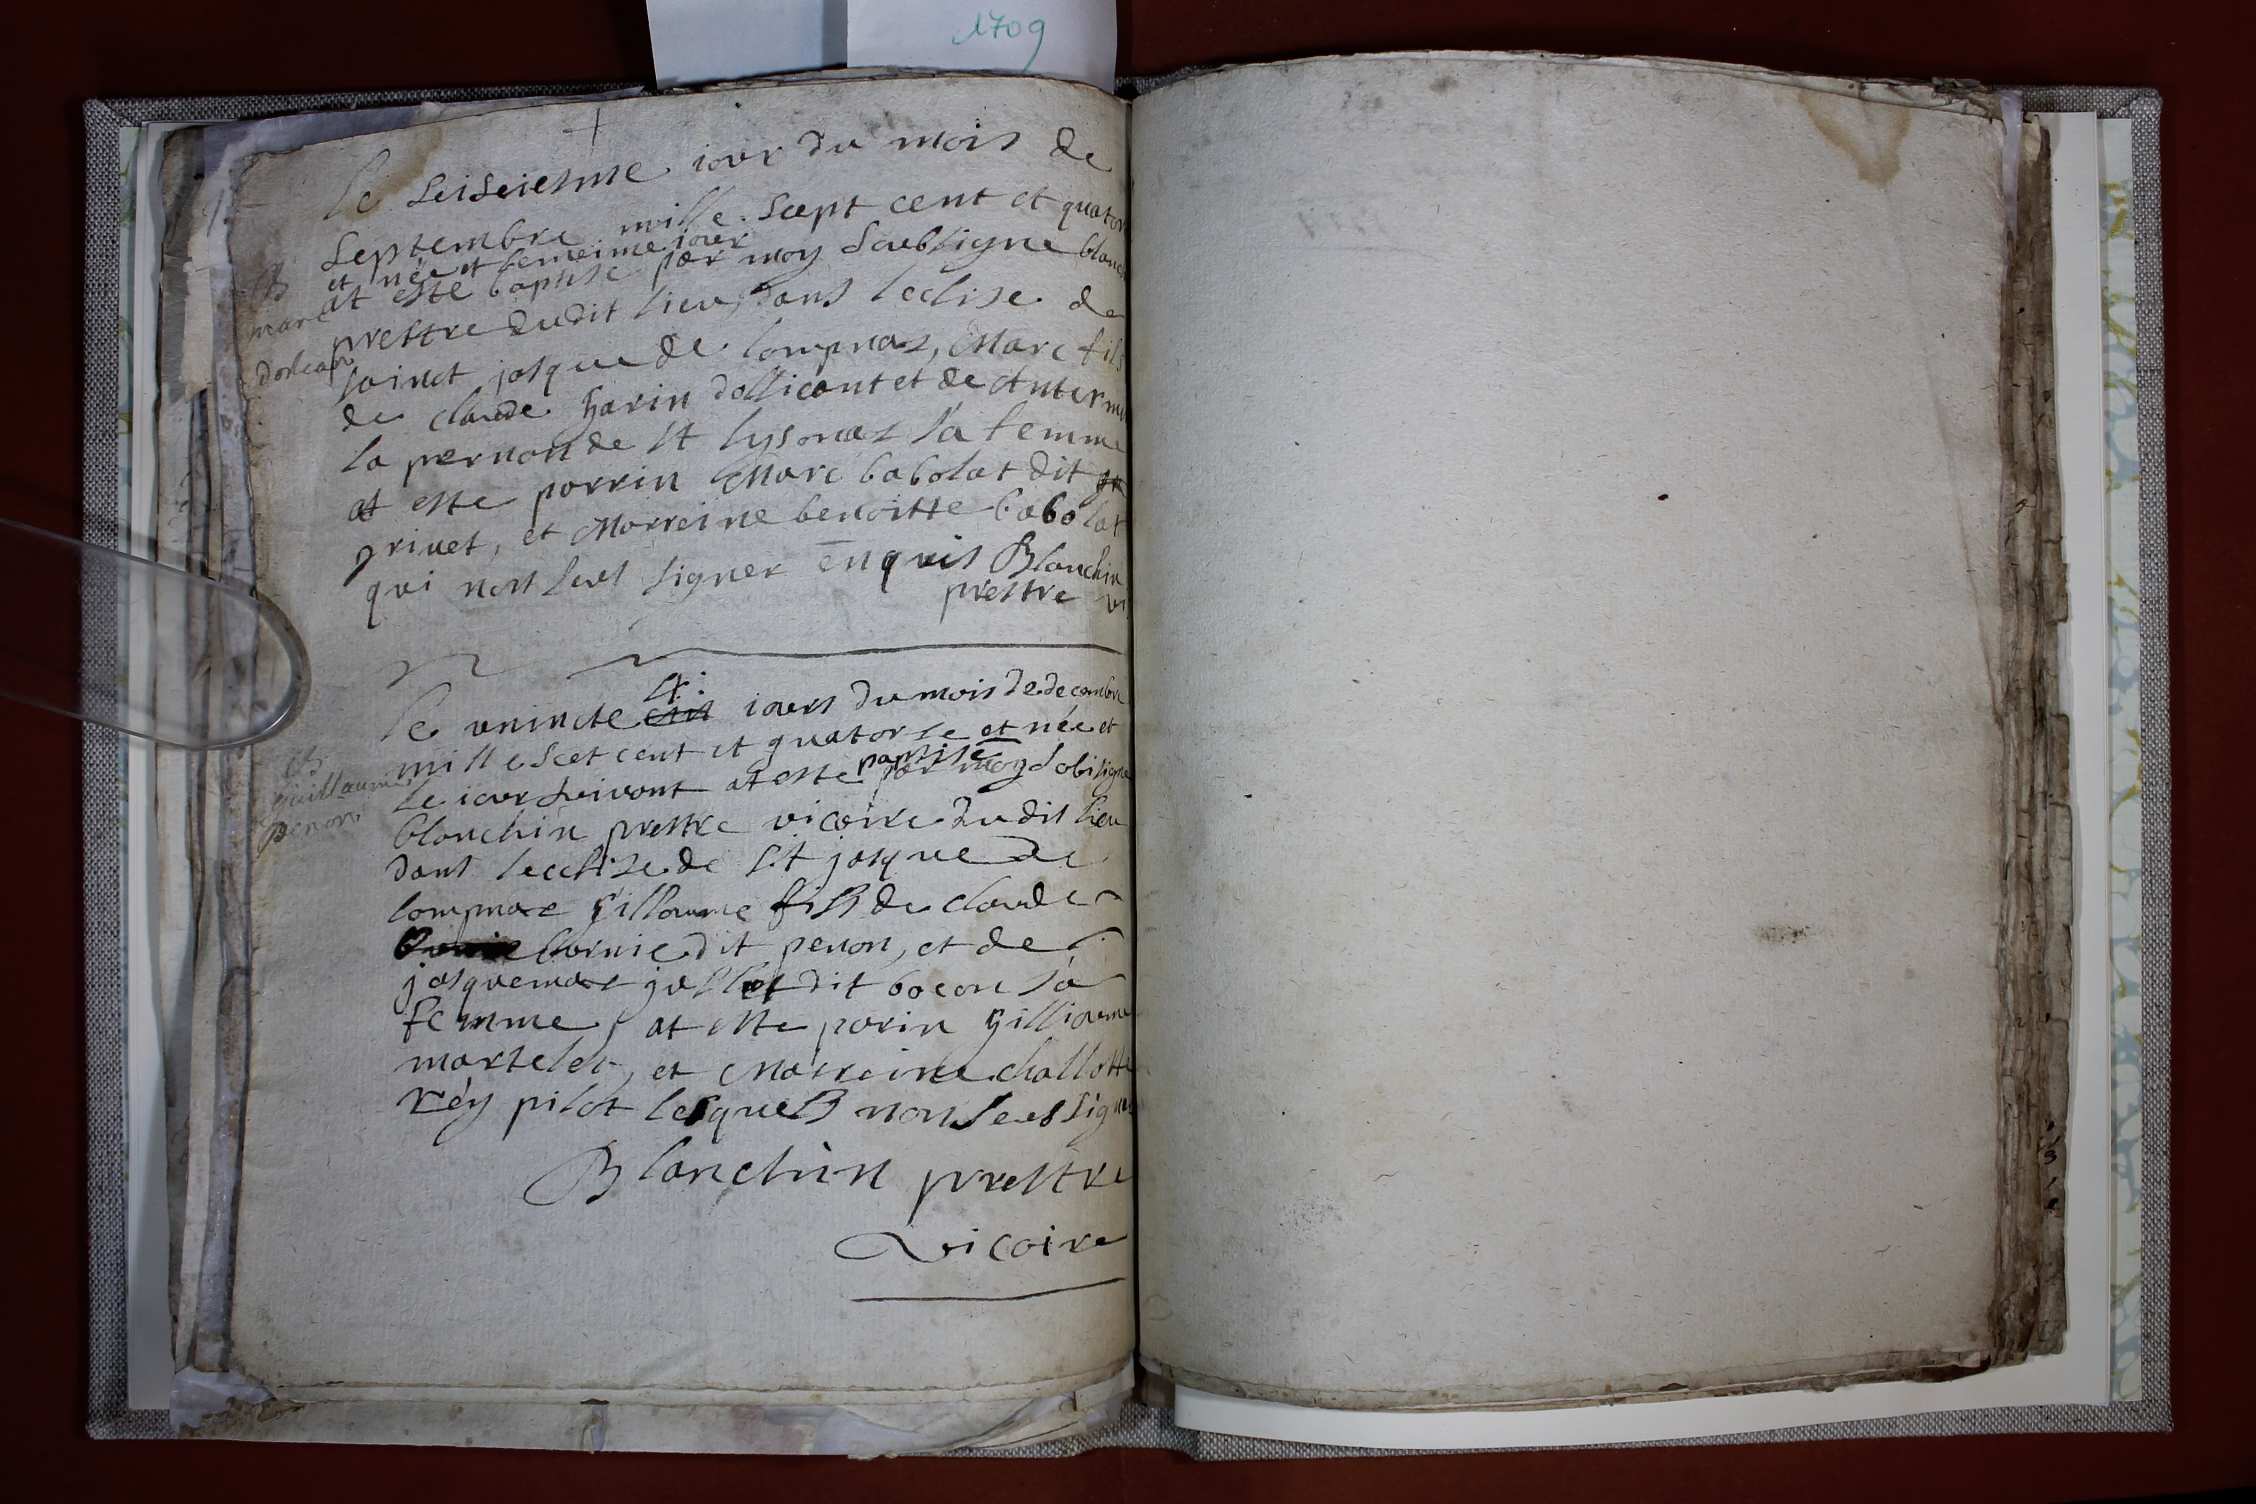 1709
le seiseiesme iour du mois de
Septembre mille. Scept cent et quator
et née et lemeime iour
at este baptise par moy soubsigne blanch
B
marc
prestre dudit lieu, dans leclise de
sainct jasque de lompnaz, Marc fils
de claude harin dossicant et de
la pernon de st lysonaz sa femme
at este parrin Marc babolat dit
privet, et Marreine benoitte babolat
qui non seus signer enquis Blanchin
prestre vi
le vnincte 4. iours du mois de decembre
mille scet cent et quatorse et née et
B
guillaume
penon
le iour suivant at este paptise par moy sobisigne
blanchin prestre vicaire dudit lieu
dans lecclize de st jasque de
lompnaz gillaume fils de claude
bornie dit penon, et de
jasquemaz jullet dit bacon sa
femme, at este parin gilliaume
martelet, et Marreine challotte
réy pilot lesquels non seus signe
Blanchin prestre
vicaire